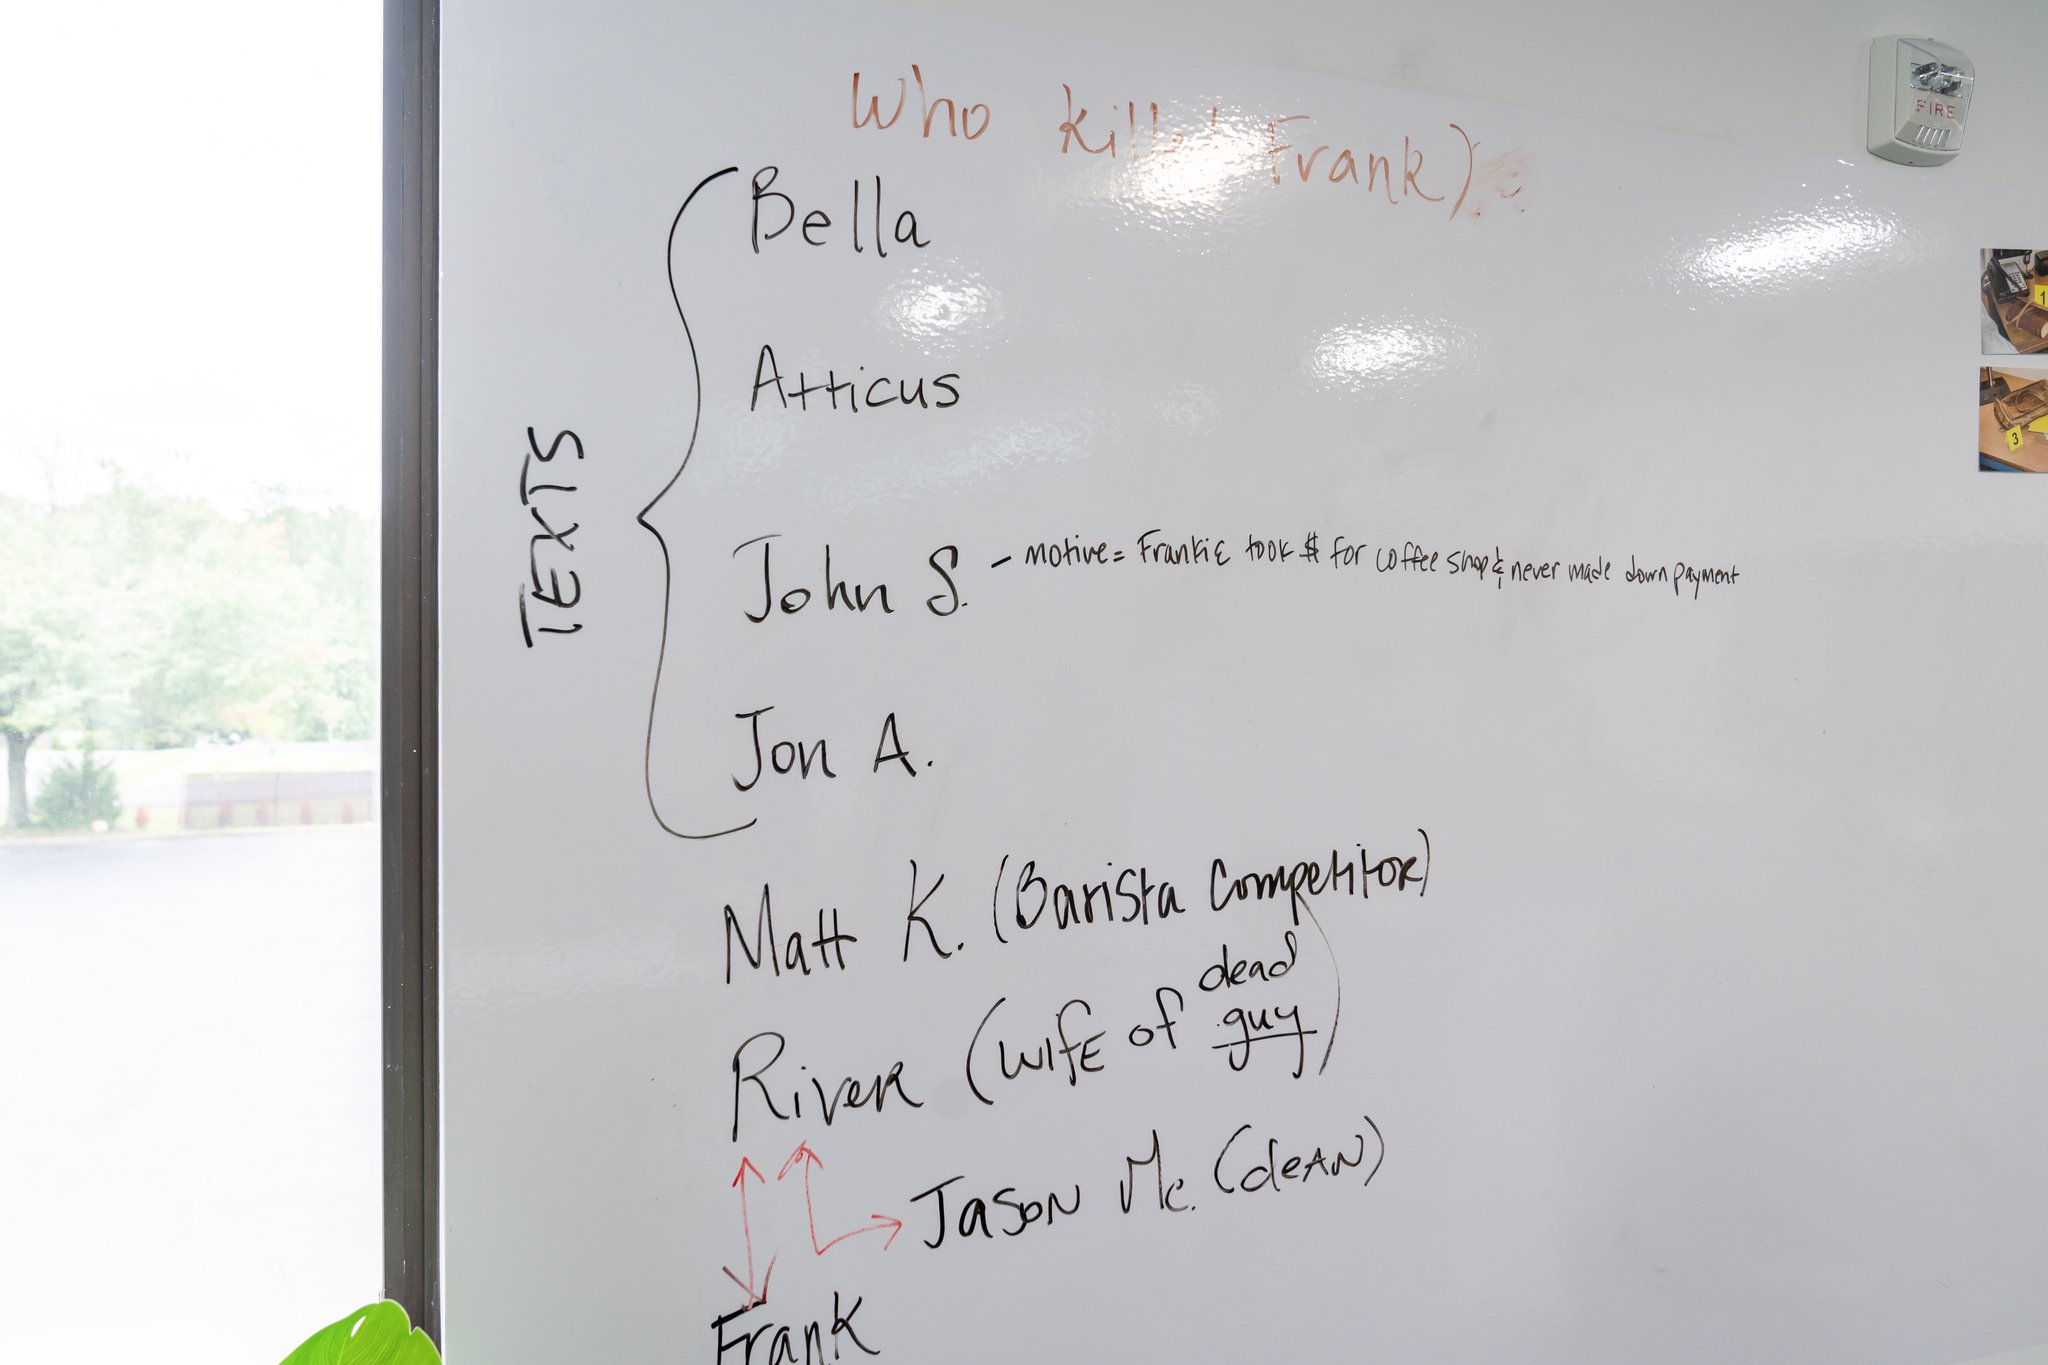 Who killed Frank)
FIRE
Bella
Atticus
TEXTS
John S. - motive = Frankie took $ for coffee shop & never made down payment
Jon A.
Matt K. (Barista Competitor)
River (wife of dead guy)
Jason Mc. (dean)
Frank
1
3